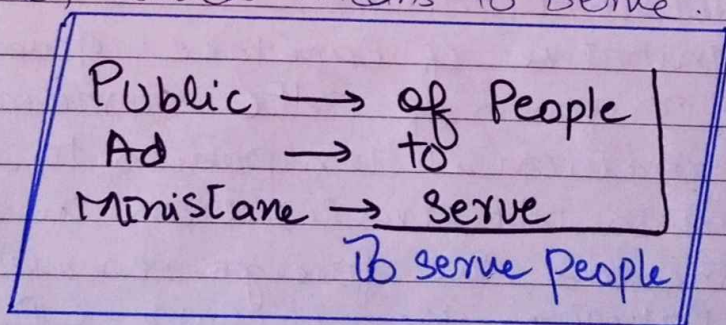 to serve.
Public → of People
Ad → to
Ministare → serve
To serve people